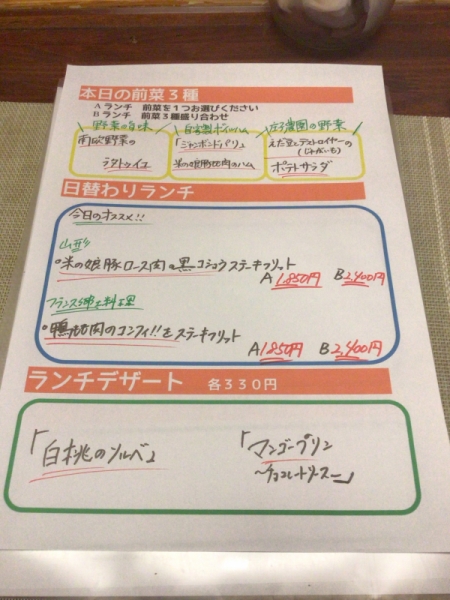 本日の前菜3種
Aランチ 前菜を1つお選びください
Bランチ 前菜3種盛り合わせ
野菜の旨味
南欧野菜の
ラタトゥイユ
自家製ボイルハム
「ジャンボンドパリ」
米の娘豚もも肉のハム
庄子農園の野菜
えだ豆とデストロイヤーの
(じゃがいも)
ポテトサラダ
日替わりランチ
今日のオススメ!!
山形
米の娘豚ロース肉の黒コショウステーキフリット
A 1,850円 B 2,400円
フランス郷土料理
鴨もも肉のコンフィ!!をステーキフリット
A 1,850円 B 2,400円
ランチデザート 各330円
「白桃のソルベ」
「マンゴープリン
~チョコレートソース~」